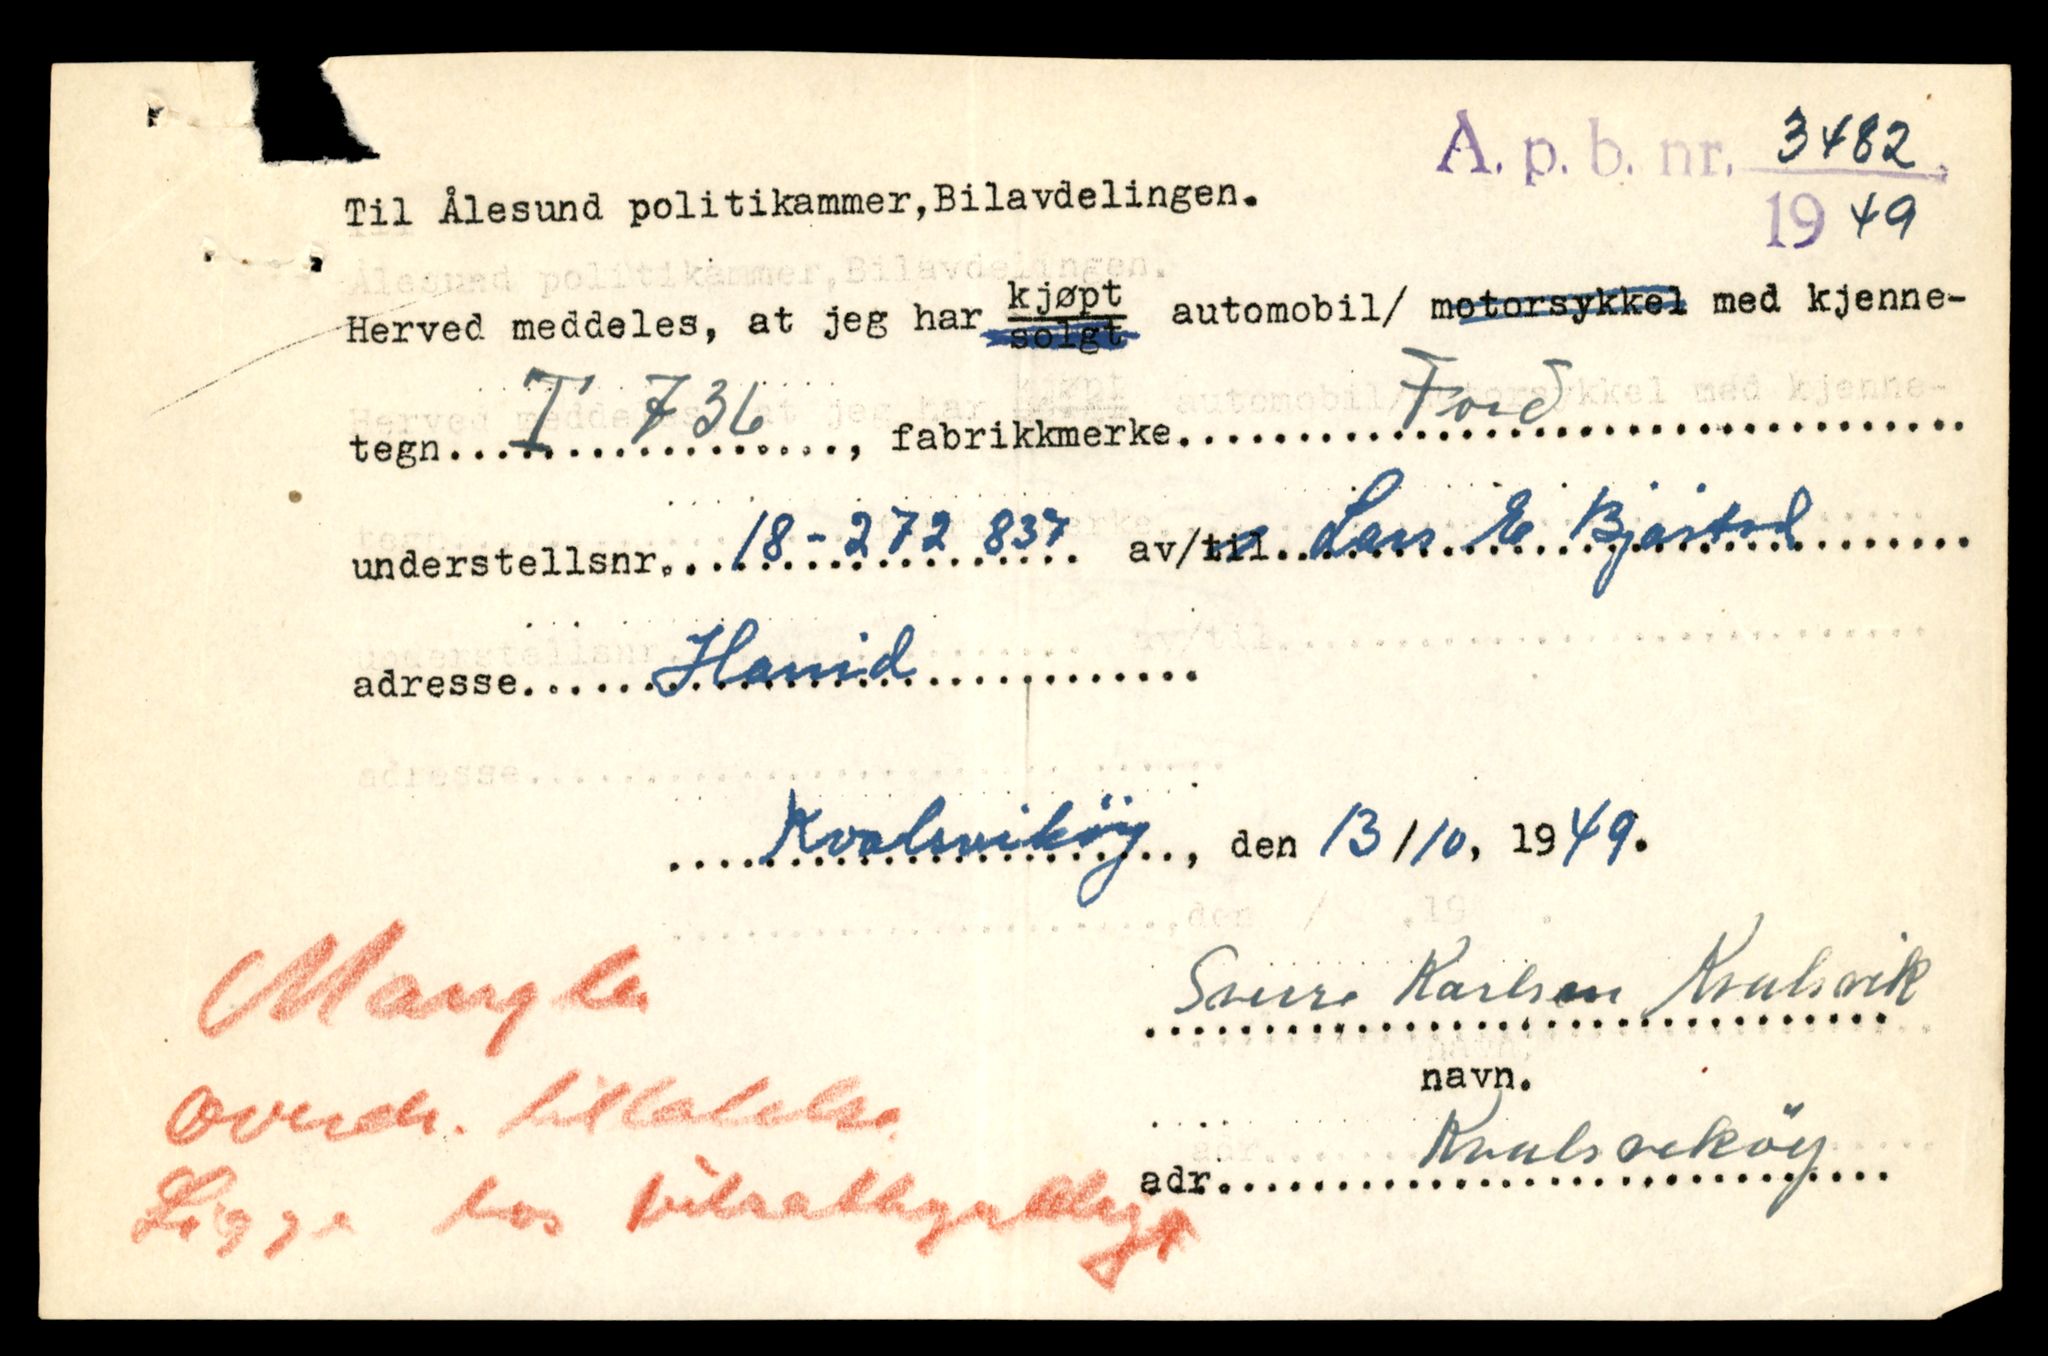 A. p. b. nr. 3482
1949
Til Ålesund politikammer, Bilavdelingen.
Herved meddeles, at jeg har kjøpt
solgt automobil/ motorsykkel med kjenne-
tegn T 736, fabrikkmerke Ford
understellsnr. 18-272 837 av/til Lars E Bjåstad
adresse Hareid
Kvalsviköy, den 13/10, 1949.
Mangler
overdr. tillatelse
Ligge hos
Sverre Karlsen Kvalsvik
navn.
adr. Kvalsviköy